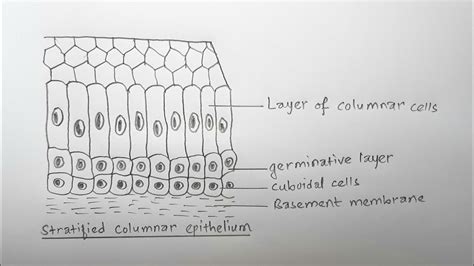 Layer of columnar cells
germinative layer
cuboidal cells
Basement membrane
Stratified columnar epithelium